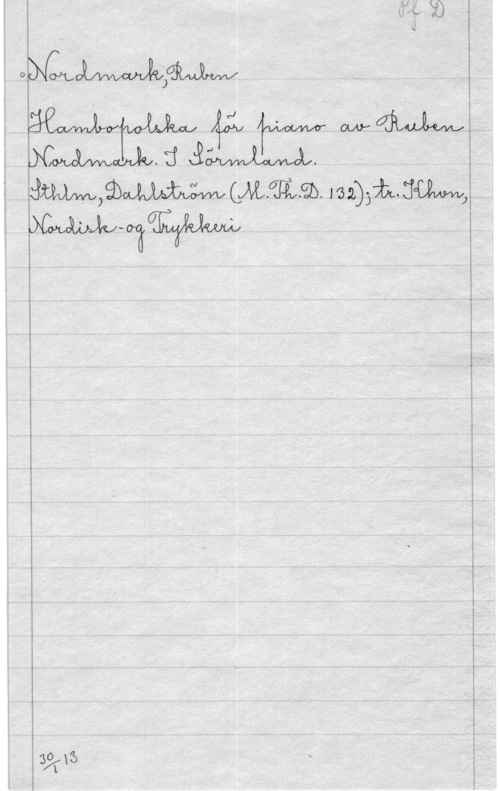 Pf D
Nordmark, Ruben
Hambopolska för piano av Ruben
Nordmark. I Sörmland.
Sthlm, Dahlström (M. Th. D. 132); tr. Khvn,
Nordisk-og Trykkeri
30/I 13